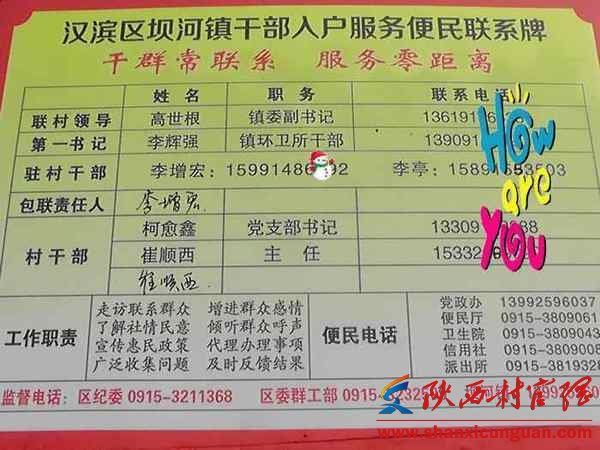 汉滨区坝河镇干部入户服务便民联系牌
干群常联系 服务零距离
姓名 职务 联系电话
联村领导 高世根 镇委副书记 13619
第一书记 李辉强 镇环卫所干部 13909
驻村干部 李增宏：15991486 李亭：
包联责任人 李增宏
村干部 柯愈鑫 党支部书记 13309
崔顺西 主任 15332
崔顺西
工作职责
走访联系群众 增进群众感情
了解社情民意 倾听群众呼声
宣传惠民政策 代理办理事项
广泛收集问题 及时反馈结果
便民电话
党政办 13992596037
便民厅 0915-3809061
卫生院 0915-3809043
信用社 0915-3809008
派出所 0915-3819328
监督电话：区纪委 0915-3211368 区委群工部 0915-
How are You
陕西村官网
www.shanxicunguan.com